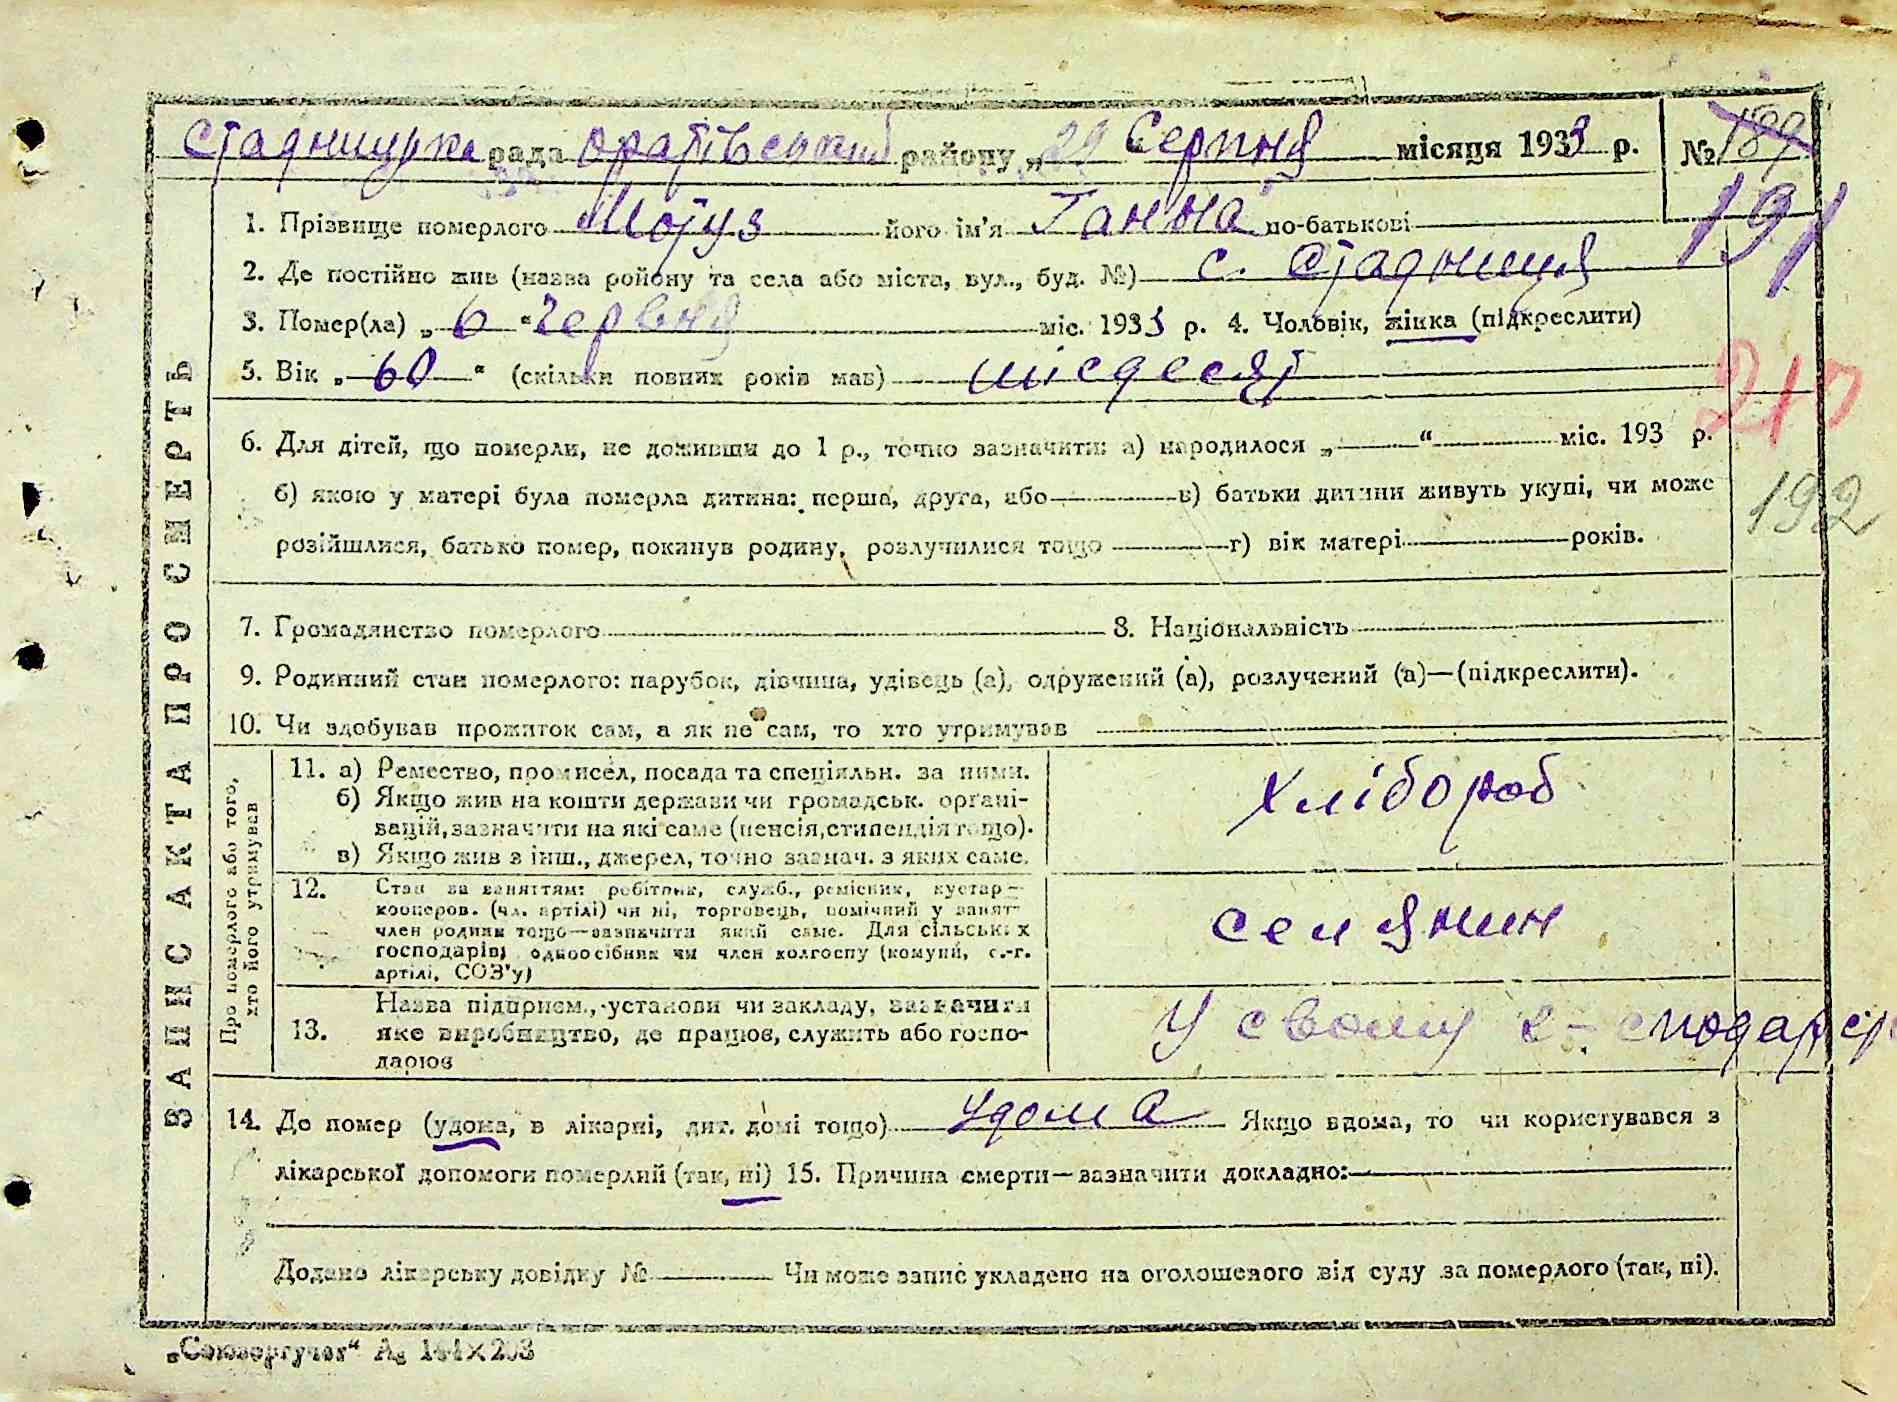 Стадницька рада Оратівський району „29 Серпня місяця 1933 р. № 189
191
1. Прізвище померлого Мотуз його ім'я Ганна по-батькові
2. Де постійно жив (назва ройону та села або міста, вул., буд. №) с. Стадниця
3. Помер(ла) „ 6 “ Червня міс. 1933 р. 4. Чоловік, жінка (підкреслити)
5. Вік „ 60 “ (скільки повних років мав) шісдесят
210
6. Для дітей, що померли, не доживши до 1 р., точно зазначити: а) народилося „ “ міс. 193 р.
б) якою у матері була померла дитина: перша, друга, або в) батьки дитини живуть укупі, чи може
192
розійшлися, батько помер, покинув родину, розлучилися тощо г) вік матері років.
7. Громадянство померлого 8. Національність
9. Родинний стан померлого: парубок, дівчина, удівець (а), одружений (а), розлучений (а)—(підкреслити).
10. Чи здобував прожиток сам, а як не сам, то хто утримував
ЗАПИС АКТА ПРО СМЕРТЬ
Про померлого або того,
хто його утримував
11. а) Ремество, промисел, посада та спеціяльн. за ними.
б) Якщо жив на кошти держави чи громадськ. органі-
зацій, зазначити на які саме (пенсія, стипендія тощо).
в) Якщо жив з інш., джерел, точно зазнач. з яких саме.
хлібороб
12. Стан за заняттям: робітник, служб., ремісник, кустар—
кооперов. (чл. артілі) чи ні, торговець, помічний у занят-
член родини тощо—зазначити який саме. Для сільських
господарів; одноосібник чи член колгоспу (комуни, с.-г.
артілі, СОЗ'у)
селянин
Назва підприєм., установи чи закладу, зазначити
13. яке виробництво, де працює, служить або госпо-
дарює
У своєму
14. Де помер (удома, в лікарні, дит. домі тощо) Удома Якщо вдома, то чи користувався з
лікарської допомоги померлий (так, ні) 15. Причина смерти—зазначити докладно:
Додано лікарську довідку № Чи може запис укладено на оголошеного від суду за померлого (так, ні).
„Союзоргучет“ А₆ 144×203